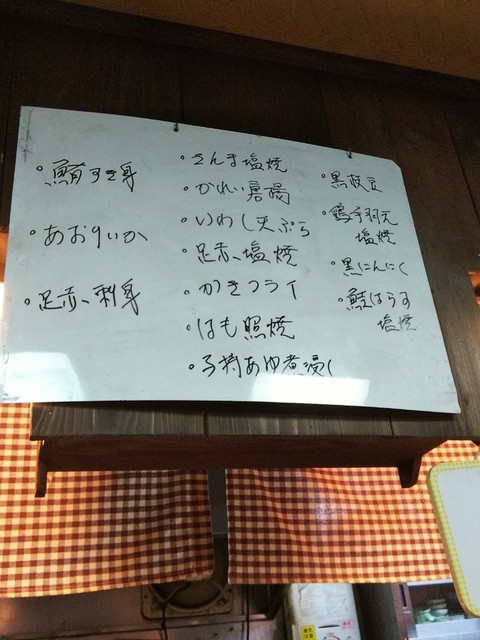 ・鮪すき身
・あおりいか
・足赤、刺身
・さんま塩焼
・かれい唐揚
・いわし天ぷら
・足赤、塩焼
・かきフライ
・はも照焼
・子持あゆ煮浸し
・黒枝豆
・鶏手羽元
塩焼
・黒にんにく
・鮭はらす
塩焼